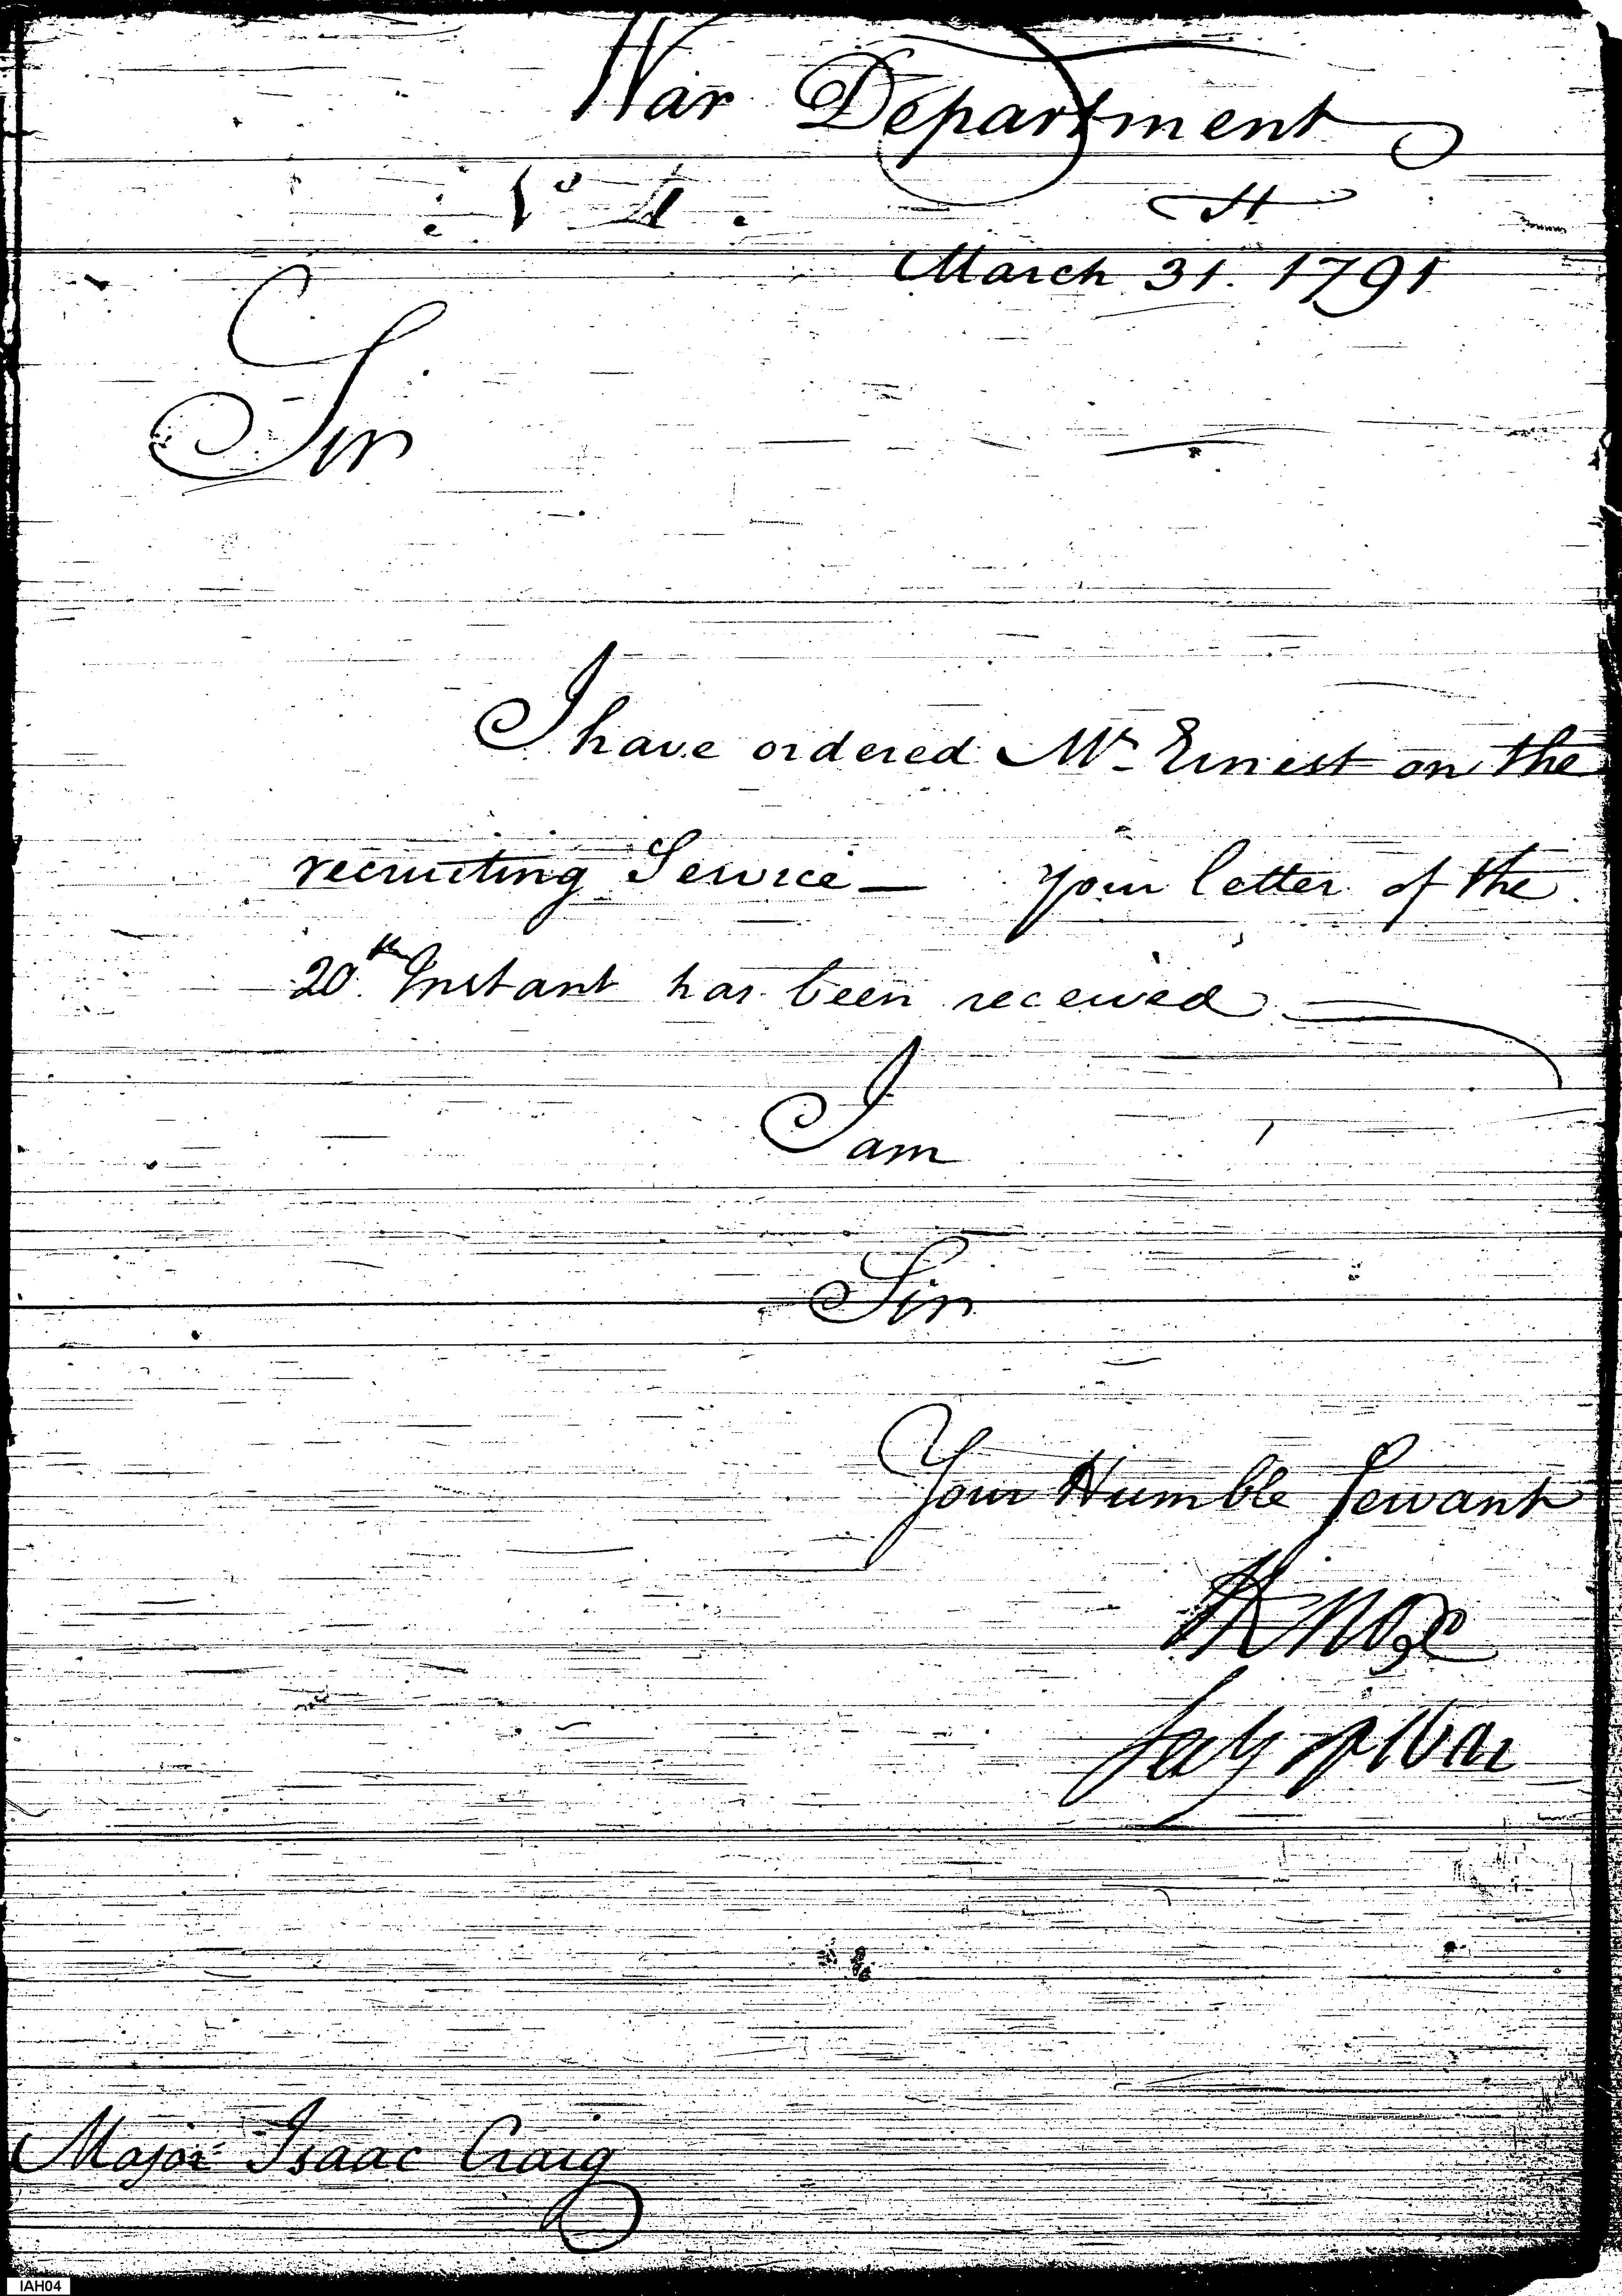 War Department
March 31. 1791
Sir
I have ordered Mr. Ernest on the
recruiting Service — your letter of the
20th Instant has been received
I am
Sir
Your Humble Servant
HKnox
Secy of War
Major Isaac Craig
IAH04